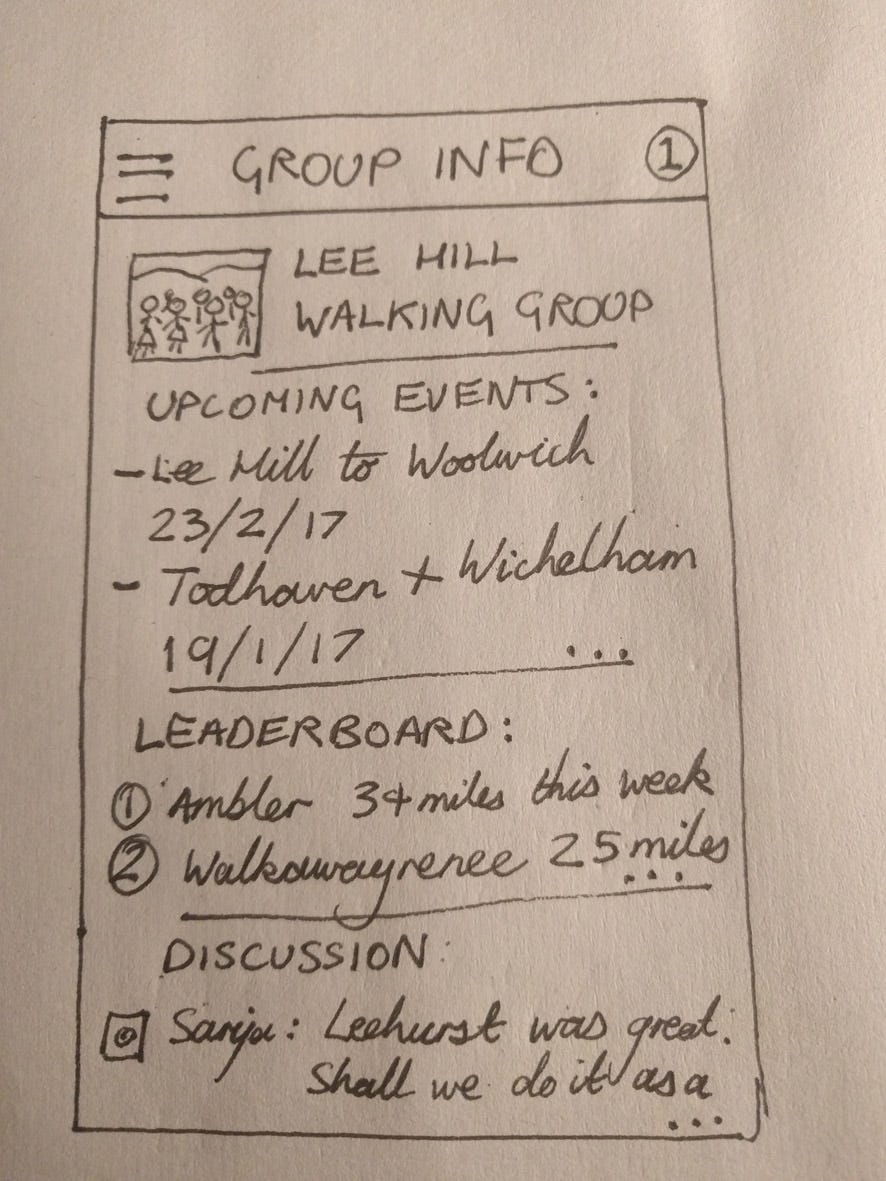 GROUP INFO 1
LEE HILL
WALKING GROUP
UPCOMING EVENTS:
- Lee Hill to Woolwich
23/2/17
- Todhaven + Wichelham
19/1/17 ...
LEADERBOARD:
1 Ambler 34 miles this week
2 Walkawayrenee 25 miles
...
DISCUSSION:
Sanja: Leehurst was great.
Shall we do it as a
...